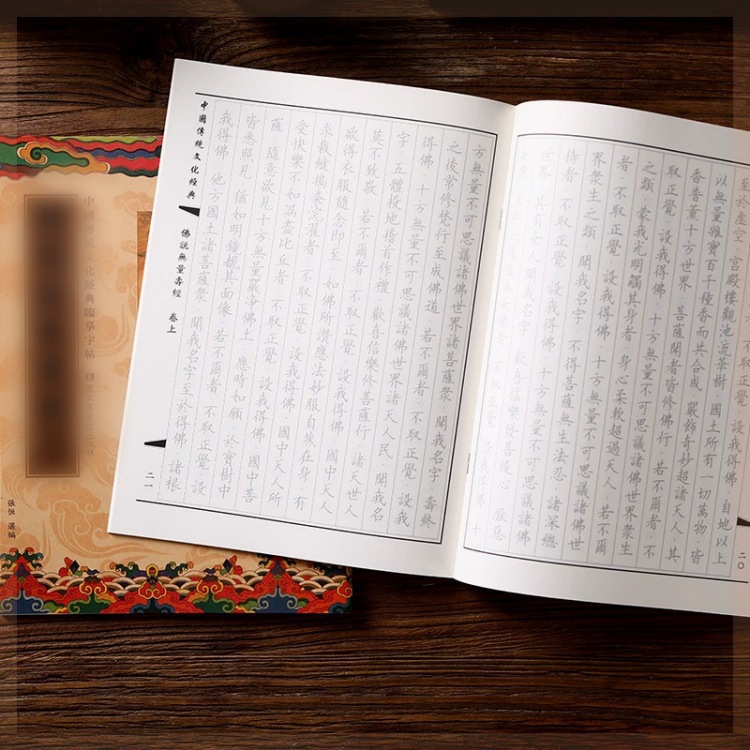 不取正覺·設我得佛·自地以上
至於虛空·宮殿樓觀池流華樹·國土所有一切萬物·皆
以無量雜寶百千種香而共合成·嚴飾奇妙超諸天人·其
香普薰十方世界·菩薩聞者皆修佛行·若不爾者·不
取正覺·設我得佛·十方無量不可思議諸佛世界衆生
之類·蒙我光明觸其身者·身心柔軟超過天人·若不爾
者·不取正覺·設我得佛·十方無量不可思議諸佛世
界衆生之類·聞我名字·不得菩薩無生法忍·諸深總
持者·不取正覺·設我得佛·十方無量不可思議諸佛
世界·其有女人聞我名字·歡喜信樂發菩提心·厭惡
不取正覺·設我得佛·十
二〇
方無量不可思議諸佛世界諸菩薩衆·聞我名字·壽終
之後常修梵行至成佛道·若不爾者·不取正覺·設我
得佛·十方無量不可思議諸佛世界諸天人民·聞我名
字·五體投地稽首作禮·歡喜信樂修菩薩行·諸天世人
莫不致敬·若不爾者·不取正覺·設我得佛·國中天人
欲得衣服隨念即至·如佛所讚應法妙服自然在身·有
求裁縫搗染浣濯者·不取正覺·設我得佛·國中天人所
受快樂不如漏盡比丘者·不取正覺·設我得佛·國中菩
薩·隨意欲見十方無量嚴淨佛土·應時如願·於寶樹中
皆悉照見·猶如明鏡覩其面像·若不爾者·不取正覺·設
我得佛·他方國土諸菩薩衆·聞我名字至於得佛·諸根
中國傳統文化經典
佛說無量壽經 卷上
二一
中國傳統文化經典臨摹字帖
張恒 選編